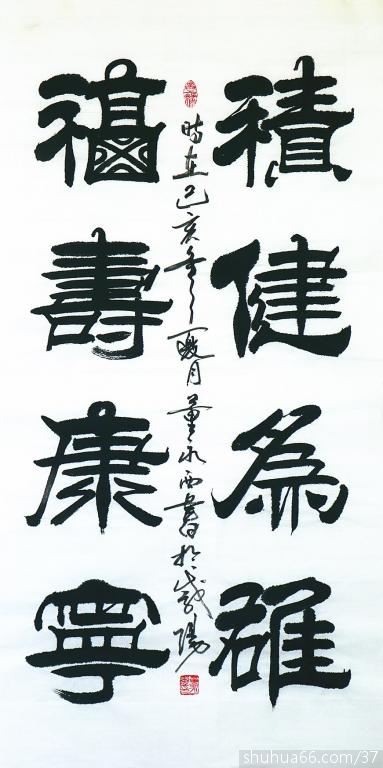 積健為雄
福壽康寧
時在己亥年 月董永西書於 陽
shuhua66.com/37